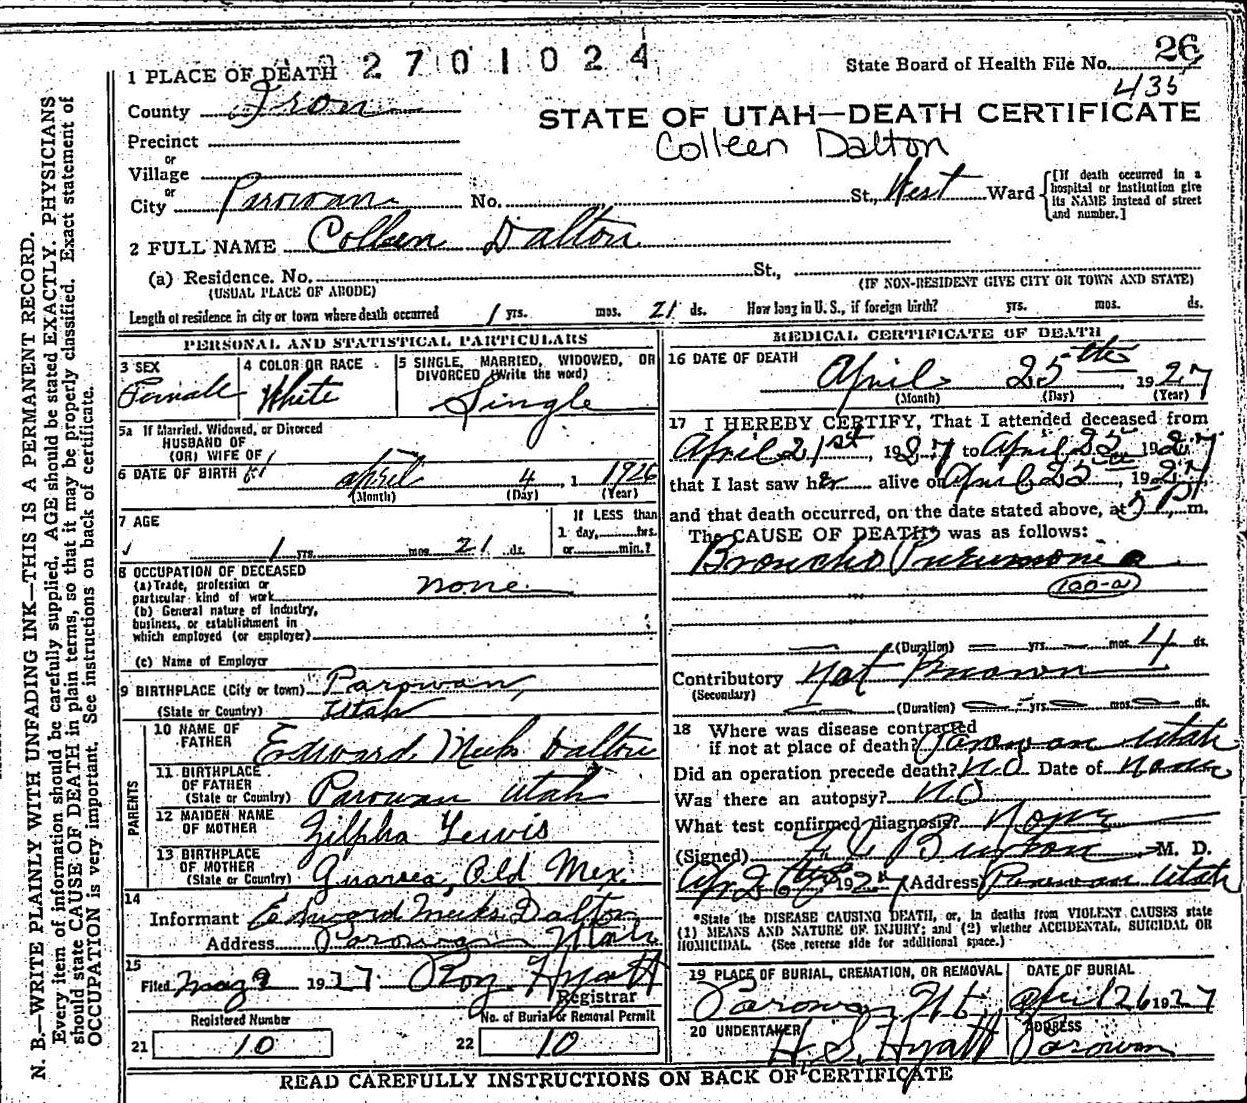 2 7 0 1 0 2 4
26
State Board of Health File No. 435
1 PLACE OF DEATH
County Iron
STATE OF UTAH—DEATH CERTIFICATE
Colleen Dalton
Precinct
or
Village
or
City Parowan No. St., West Ward
[If death occurred in a hospital or institution give its NAME instead of street and number.]
2 FULL NAME Colleen Dalton
(a) Residence. No. St.,
(USUAL PLACE OF ABODE) (IF NON-RESIDENT GIVE CITY OR TOWN AND STATE)
Length of residence in city or town where death occurred 1 yrs. mos. 21 ds. How long in U. S., if foreign birth? yrs. mos. ds.
PERSONAL AND STATISTICAL PARTICULARS
3 SEX Female
4 COLOR OR RACE White
5 SINGLE, MARRIED, WIDOWED, OR DIVORCED (Write the word) Single
5a If Married, Widowed, or Divorced
HUSBAND OF
(OR) WIFE OF
6 DATE OF BIRTH april 4, 1 1926
(Month) (Day) (Year)
7 AGE
1 yrs. mos. 21 ds.
If LESS than
1 day, hrs.
or min.?
8 OCCUPATION OF DECEASED
(a) Trade, profession or
particular kind of work none
(b) General nature of industry,
business, or establishment in
which employed (or employer)
(c) Name of Employer
9 BIRTHPLACE (City or town) Parowan,
(State or Country) Utah
PARENTS
10 NAME OF FATHER Edward Meeks Dalton
11 BIRTHPLACE OF FATHER (State or Country) Parowan Utah
12 MAIDEN NAME OF MOTHER Zilpha Lewis
13 BIRTHPLACE OF MOTHER (State or Country) Old Mex.
14
Informant Edward Meeks Dalton
Address Parowan Utah
15
Filed May 9 1927 Roy Hyatt
Registrar
Registered Number No. of Burial or Removal Permit
21 10 22 10
MEDICAL CERTIFICATE OF DEATH
16 DATE OF DEATH
April 25th, 1927
(Month) (Day) (Year)
17 I HEREBY CERTIFY, That I attended deceased from
April 21st, 1927 to April 25 1927
that I last saw her alive on April 25th, 1927
and that death occurred, on the date stated above, at 5 P.m.
The CAUSE OF DEATH* was as follows:
Broncho Pneumonia
100-a
(Duration) yrs. mos. 4 ds.
Contributory Not Known
(Secondary)
(Duration) yrs. mos. ds.
18 Where was disease contracted
if not at place of death? Parowan Utah
Did an operation precede death? No Date of None
Was there an autopsy? No
What test confirmed diagnosis? None
(Signed) Burton M. D.
Apr 26th, 1927 (Address) Parowan Utah
*State the DISEASE CAUSING DEATH, or, in deaths from VIOLENT CAUSES state
(1) MEANS AND NATURE OF INJURY; and (2) whether ACCIDENTAL, SUICIDAL OR
HOMICIDAL. (See reverse side for additional space.)
19 PLACE OF BURIAL, CREMATION, OR REMOVAL DATE OF BURIAL
Parowan Ut. april 26 1927
20 UNDERTAKER ADDRESS
H. S. Hyatt Parowan
READ CAREFULLY INSTRUCTIONS ON BACK OF CERTIFICATE
N. B.—WRITE PLAINLY WITH UNFADING INK—THIS IS A PERMANENT RECORD.
Every item of information should be carefully supplied. AGE should be stated EXACTLY. PHYSICIANS
should state CAUSE OF DEATH in plain terms, so that it may be properly classified. Exact statement of
OCCUPATION is very important. See instructions on back of certificate.